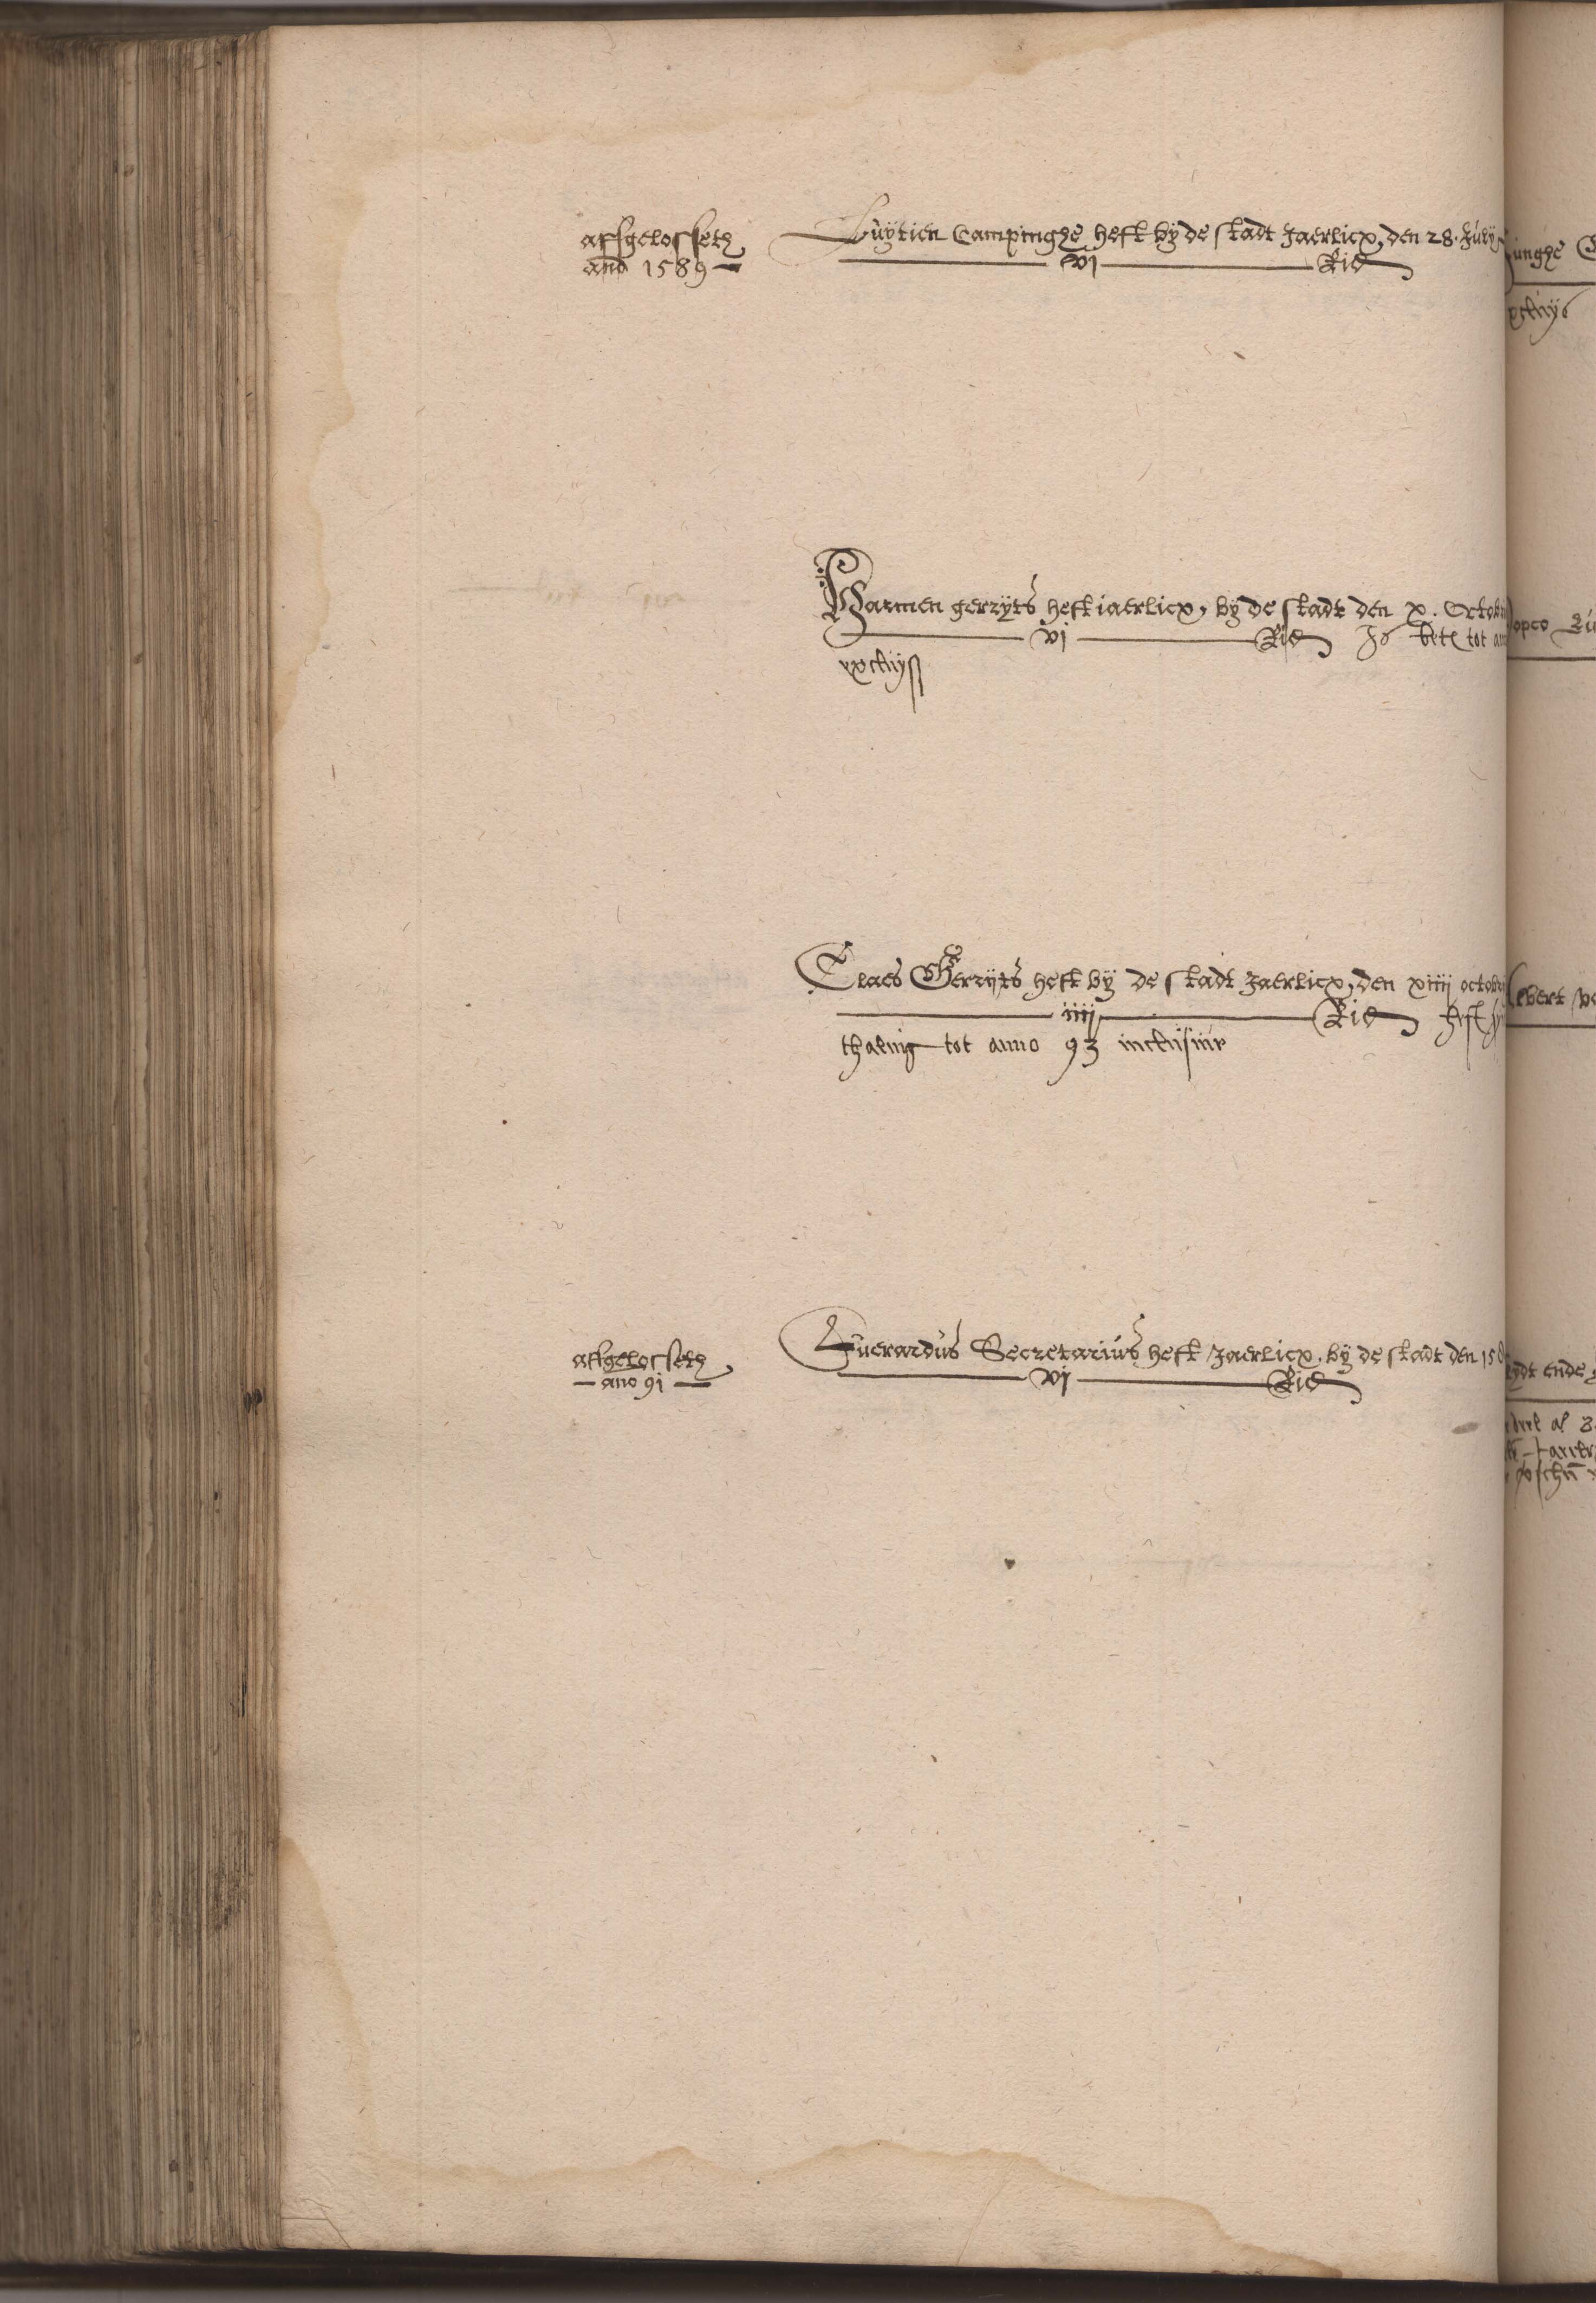 affgelosseth
ano 1589
Luÿtien Campinghe heft bÿ de stadt Jaerlicx, den 28. Julÿ
vj Rid
Harmen gerrÿts heft iaerlicx, bÿ de stadt den x. Octob
vj Rid Is bet. tot an
exclusi
Claes Gerrÿts heft bÿ de stadt Jaerlicx, den xiiij octob
iiij Rid heft
tot anno 93 inclusiue
affgelosseth
ano 91
Euerardus Secretarius heft Jaerlicx, bÿ de stadt den 15
vj Rid
unghe
opco
ebert
ydt ende
al